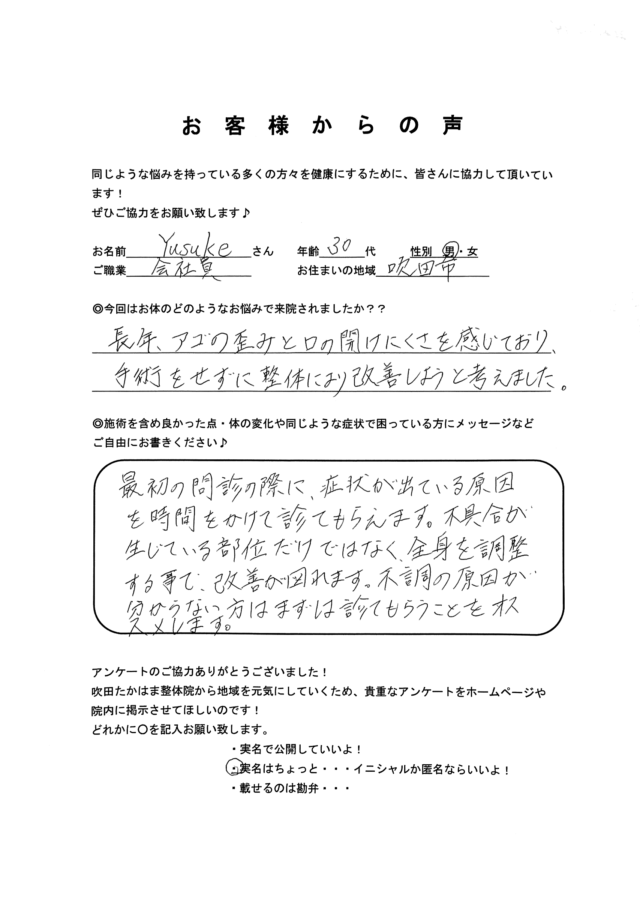 お客様からの声
同じような悩みを持っている多くの方々を健康にするために、皆さんに協力して頂いてい
ます！
ぜひご協力をお願い致します♪
お名前 Yusuke さん 年齢 30 代 性別 男・女
ご職業 会社員 お住まいの地域 吹田市
◎今回はお体のどのようなお悩みで来院されましたか？？
長年、アゴの歪みと口の開けにくさを感じており、
手術をせずに整体により改善しようと考えました。
◎施術を含め良かった点・体の変化や同じような症状で困っている方にメッセージなど
ご自由にお書きください♪
最初の問診の際に、症状が出ている原因
を時間をかけて診てもらえます。不具合が
生じている部位だけではなく、全身を調整
する事で、改善が図れます。不調の原因が
分からない方はまずは診てもらうことをオス
スメします。
アンケートのご協力ありがとうございました！
吹田たかはま整体院から地域を元気にしていくため、貴重なアンケートをホームページや
院内に掲示させてほしいのです！
どれかに〇を記入お願い致します。
・実名で公開していいよ！
・実名はちょっと・・・イニシャルか匿名ならいいよ！
・載せるのは勘弁・・・